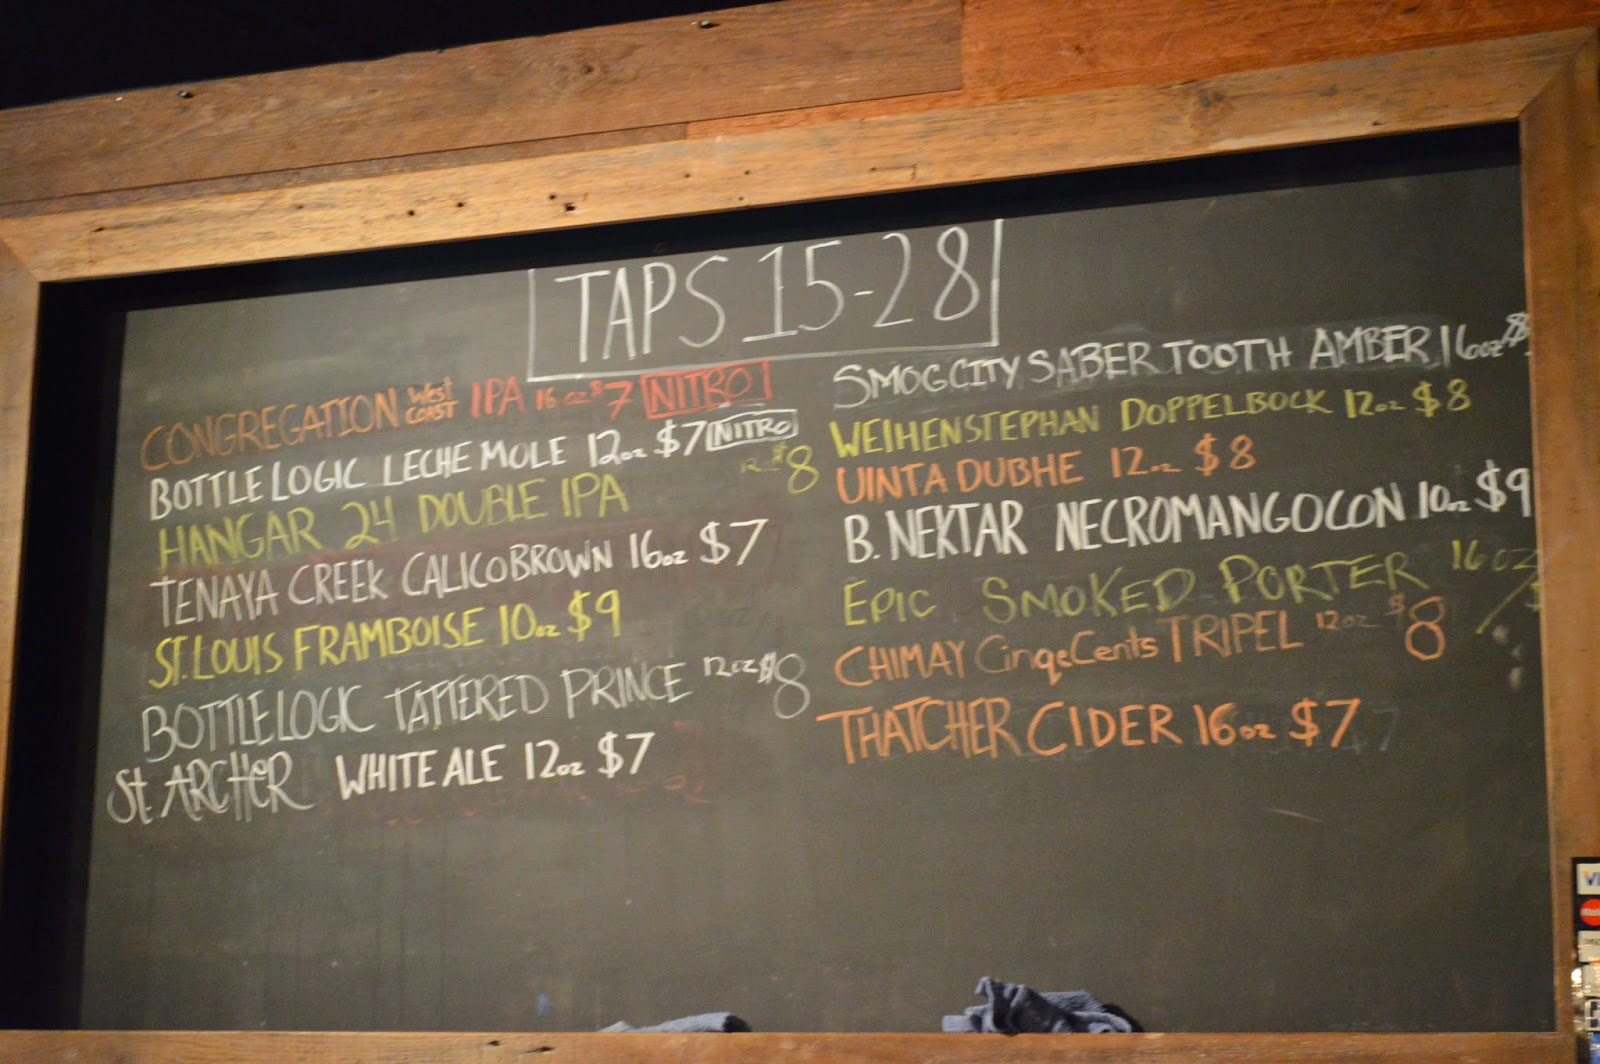 TAPS 15-28
CONGREGATION WEST COAST IPA 16 oz $7 NITRO
BOTTLE LOGIC LECHE MOLE 12oz $7 NITRO
HANGAR 24 DOUBLE IPA $8
TENAYA CREEK CALICO BROWN 16oz $7
ST. LOUIS FRAMBOISE 10oz $9
BOTTLELOGIC TATTERED PRINCE 12oz $8
St. ARCHER WHITE ALE 12oz $7
SMOGCITY SABER TOOTH AMBER 16oz $8
WEIHENSTEPHAN DOPPELBOCK 12oz $8
UINTA DUBHE 12oz $8
B. NEKTAR NECROMANGOCON 10oz $9
EPIC SMOKED PORTER 16 oz
CHIMAY CinqeCents TRIPEL 12oz $8
THATCHER CIDER 16oz $7